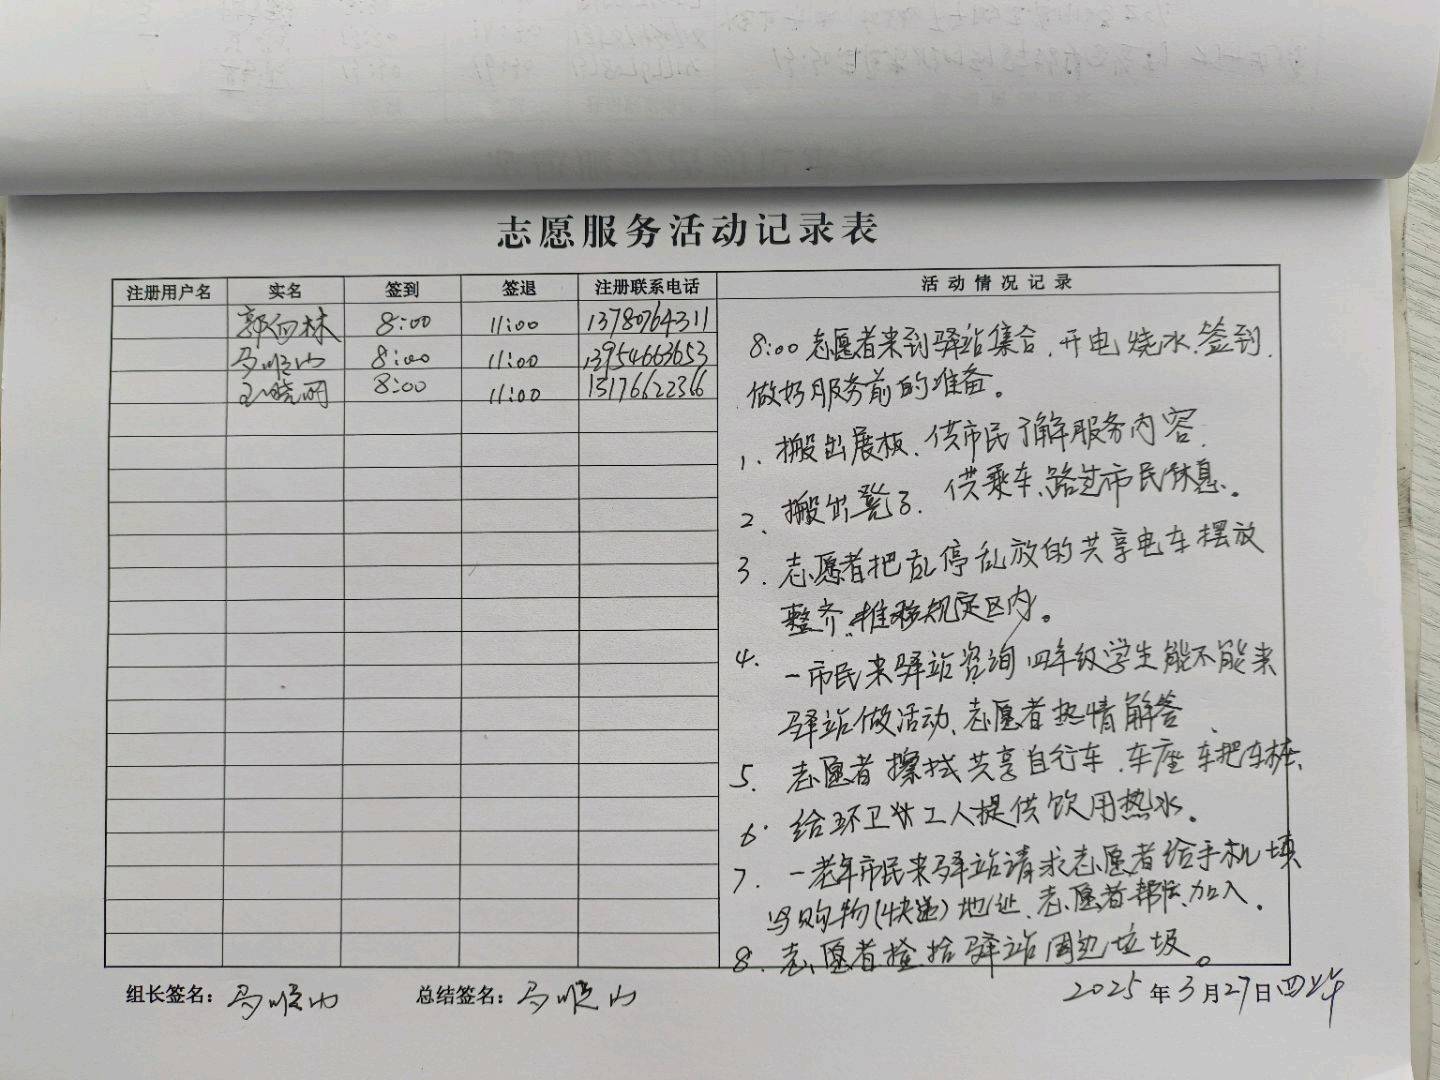 志愿服务活动记录表
注册用户名 实名 签到 签退 注册联系电话 活动情况记录
郭向林 8:00 11:00 13780764311
马顺山 8:00 11:00 13954663653
王晓明 8:00 11:00 15176622366
8:00志愿者来到驿站集合、开电烧水、签到、
做好服务前的准备。
1、搬出展板、供市民了解服务内容、
2、搬出凳子、供乘车、路过市民休息。
3、志愿者把乱停乱放的共享电车摆放
整齐、推移规定区内。
4、一市民来驿站咨询四年级学生能不能来
驿站做活动、志愿者热情解答、
5、志愿者擦拭共享自行车、车座车把车桩、
6、给环卫工人提供饮用热水。
7、一老年市民来驿站请求志愿者给手机填
写购物(快递)地址、志愿者帮忙加入。
8、志愿者捡拾驿站周边垃圾。
组长签名：马顺山 总结签名：马顺山 2025年3月27日四上午